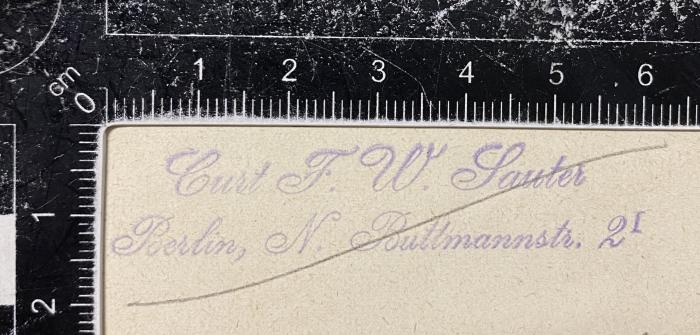 cm
0 1 2 3 4 5 6
1
2
Curt F. W. Sauter
Berlin, N. Buttmannstr. 2I